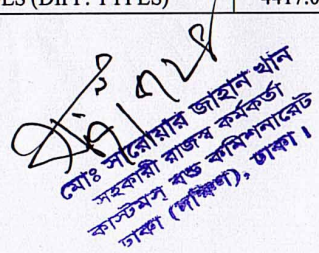 ES (DIFF. TYPES)
4417.0
মোঃ সারোয়ার জাহান খান
সহকারী রাজস্ব কর্মকর্তা
কাস্টমস্ বন্ড কমিশনারেট
ঢাকা (দক্ষিণ), ঢাকা।